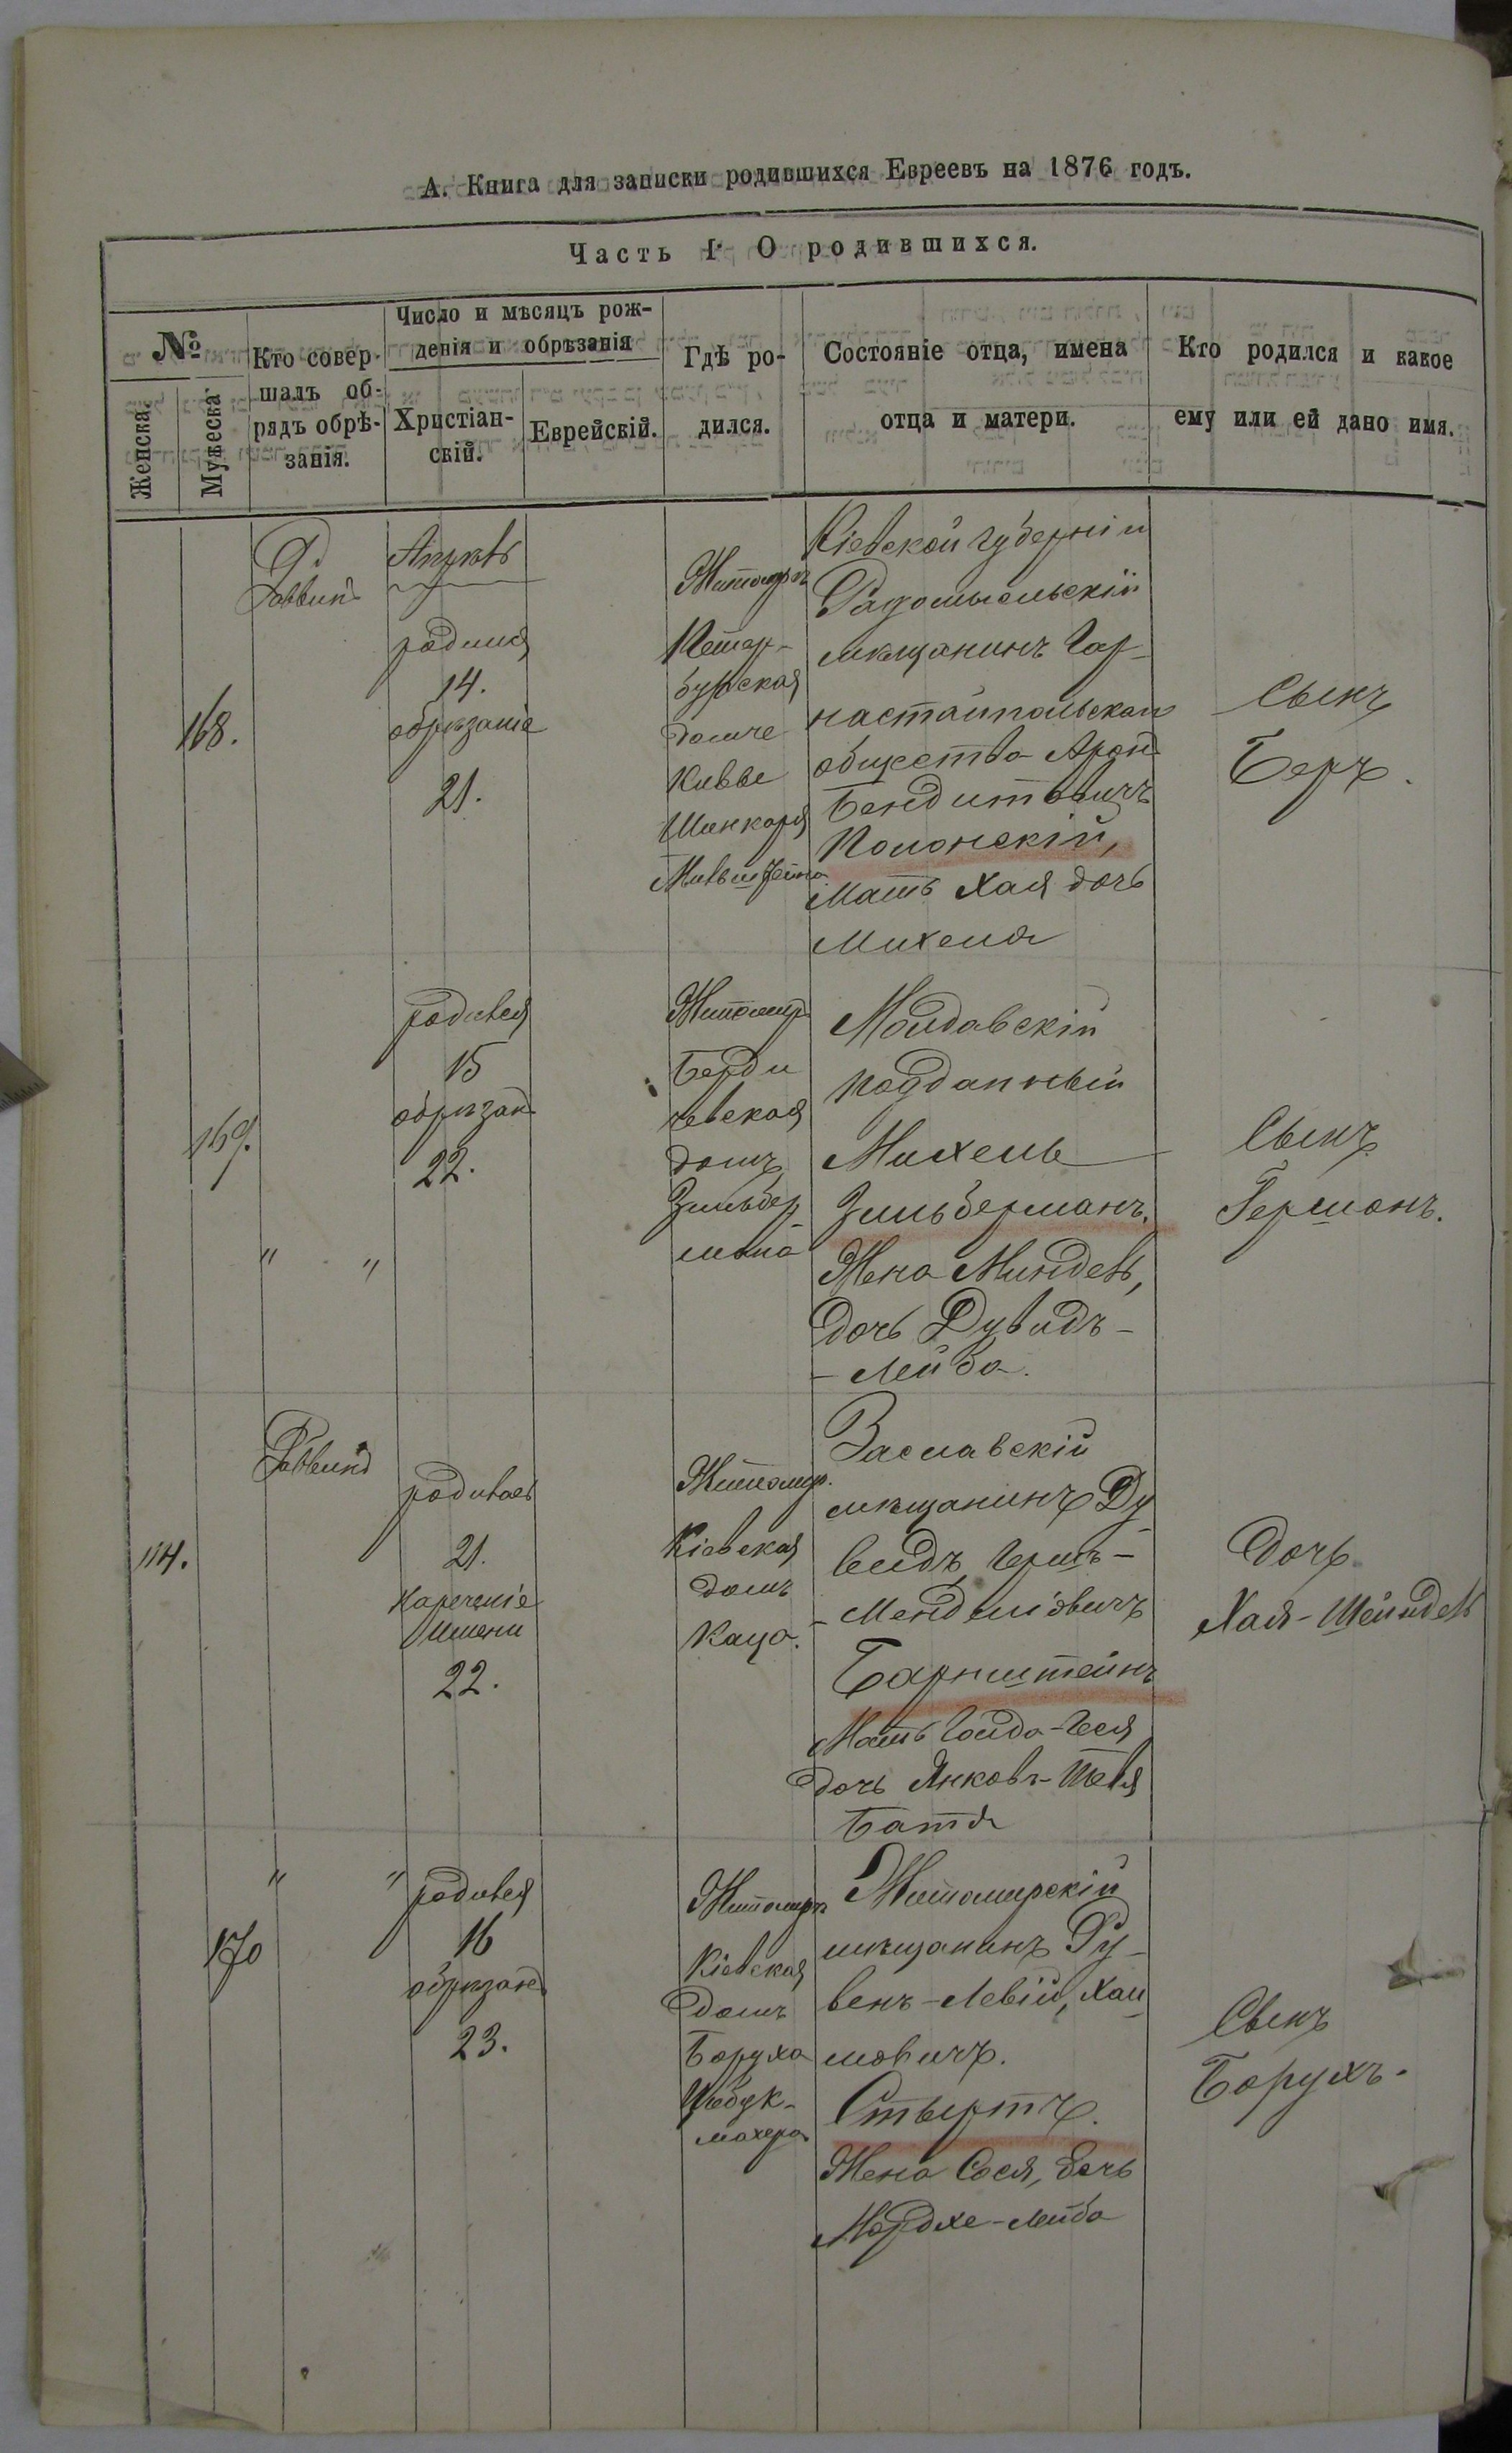 А. Книга для записки родившихся Евреевъ на 1876 годъ.
Часть I. О родившихся.
№
Женска.
Мужеска
Кто совер-
шалъ об-
рядъ обрѣ-
занія.
Число и мѣсяцъ рож-
денія и обрѣзанія
Христіан-
скій.
Еврейскій.
Гдѣ ро-
дился.
Состояніе отца, имена
отца и матери.
Кто родился и какое
ему или ей дано имя.
168.
Раввинъ
14.
обрѣзаніе
21.
Житомиръ
Петер-
бурская
Киевской губерніи
Радомысльскій
мѣщанинъ Гор-
настайпольскаго
общества Аронъ
Бендитовичъ
Полонскій,
Мать Хая дочь
Михеля
Сынъ
Беръ.
169.
" "
родився
15
обрѣзанъ
22.
Житомир
Берди
чевская
домъ
Зильбер
мана
Молдавскій
подданный
Михель
Зильберманъ.
Жена Миндель,
дочь Дувидъ-
-Лейба.
Сынъ
Гершонъ.
114.
Раввинъ
родилась
21.
Нареченіе
имени
22.
Житомир.
Кіевская
домъ
Каца.
Заславскій
мѣщанинъ Ду-
видъ Гершъ-
-Менделіовичъ
Барнштейнъ
Мать Голда-Геся
дочь Янковъ-Шевя
Дочь
Хая-Шейндель
170
" "
родився
16
обрѣзанъ
23.
Житомиръ
Кіевская
домъ
Боруха
махера
Житомирскій
мѣщанинъ Ру-
венъ-Левій, Хаи
мовичъ.
Стыртъ.
Жена Сося, дочь
Мордхе-Лейба
Сынъ
Борухъ.